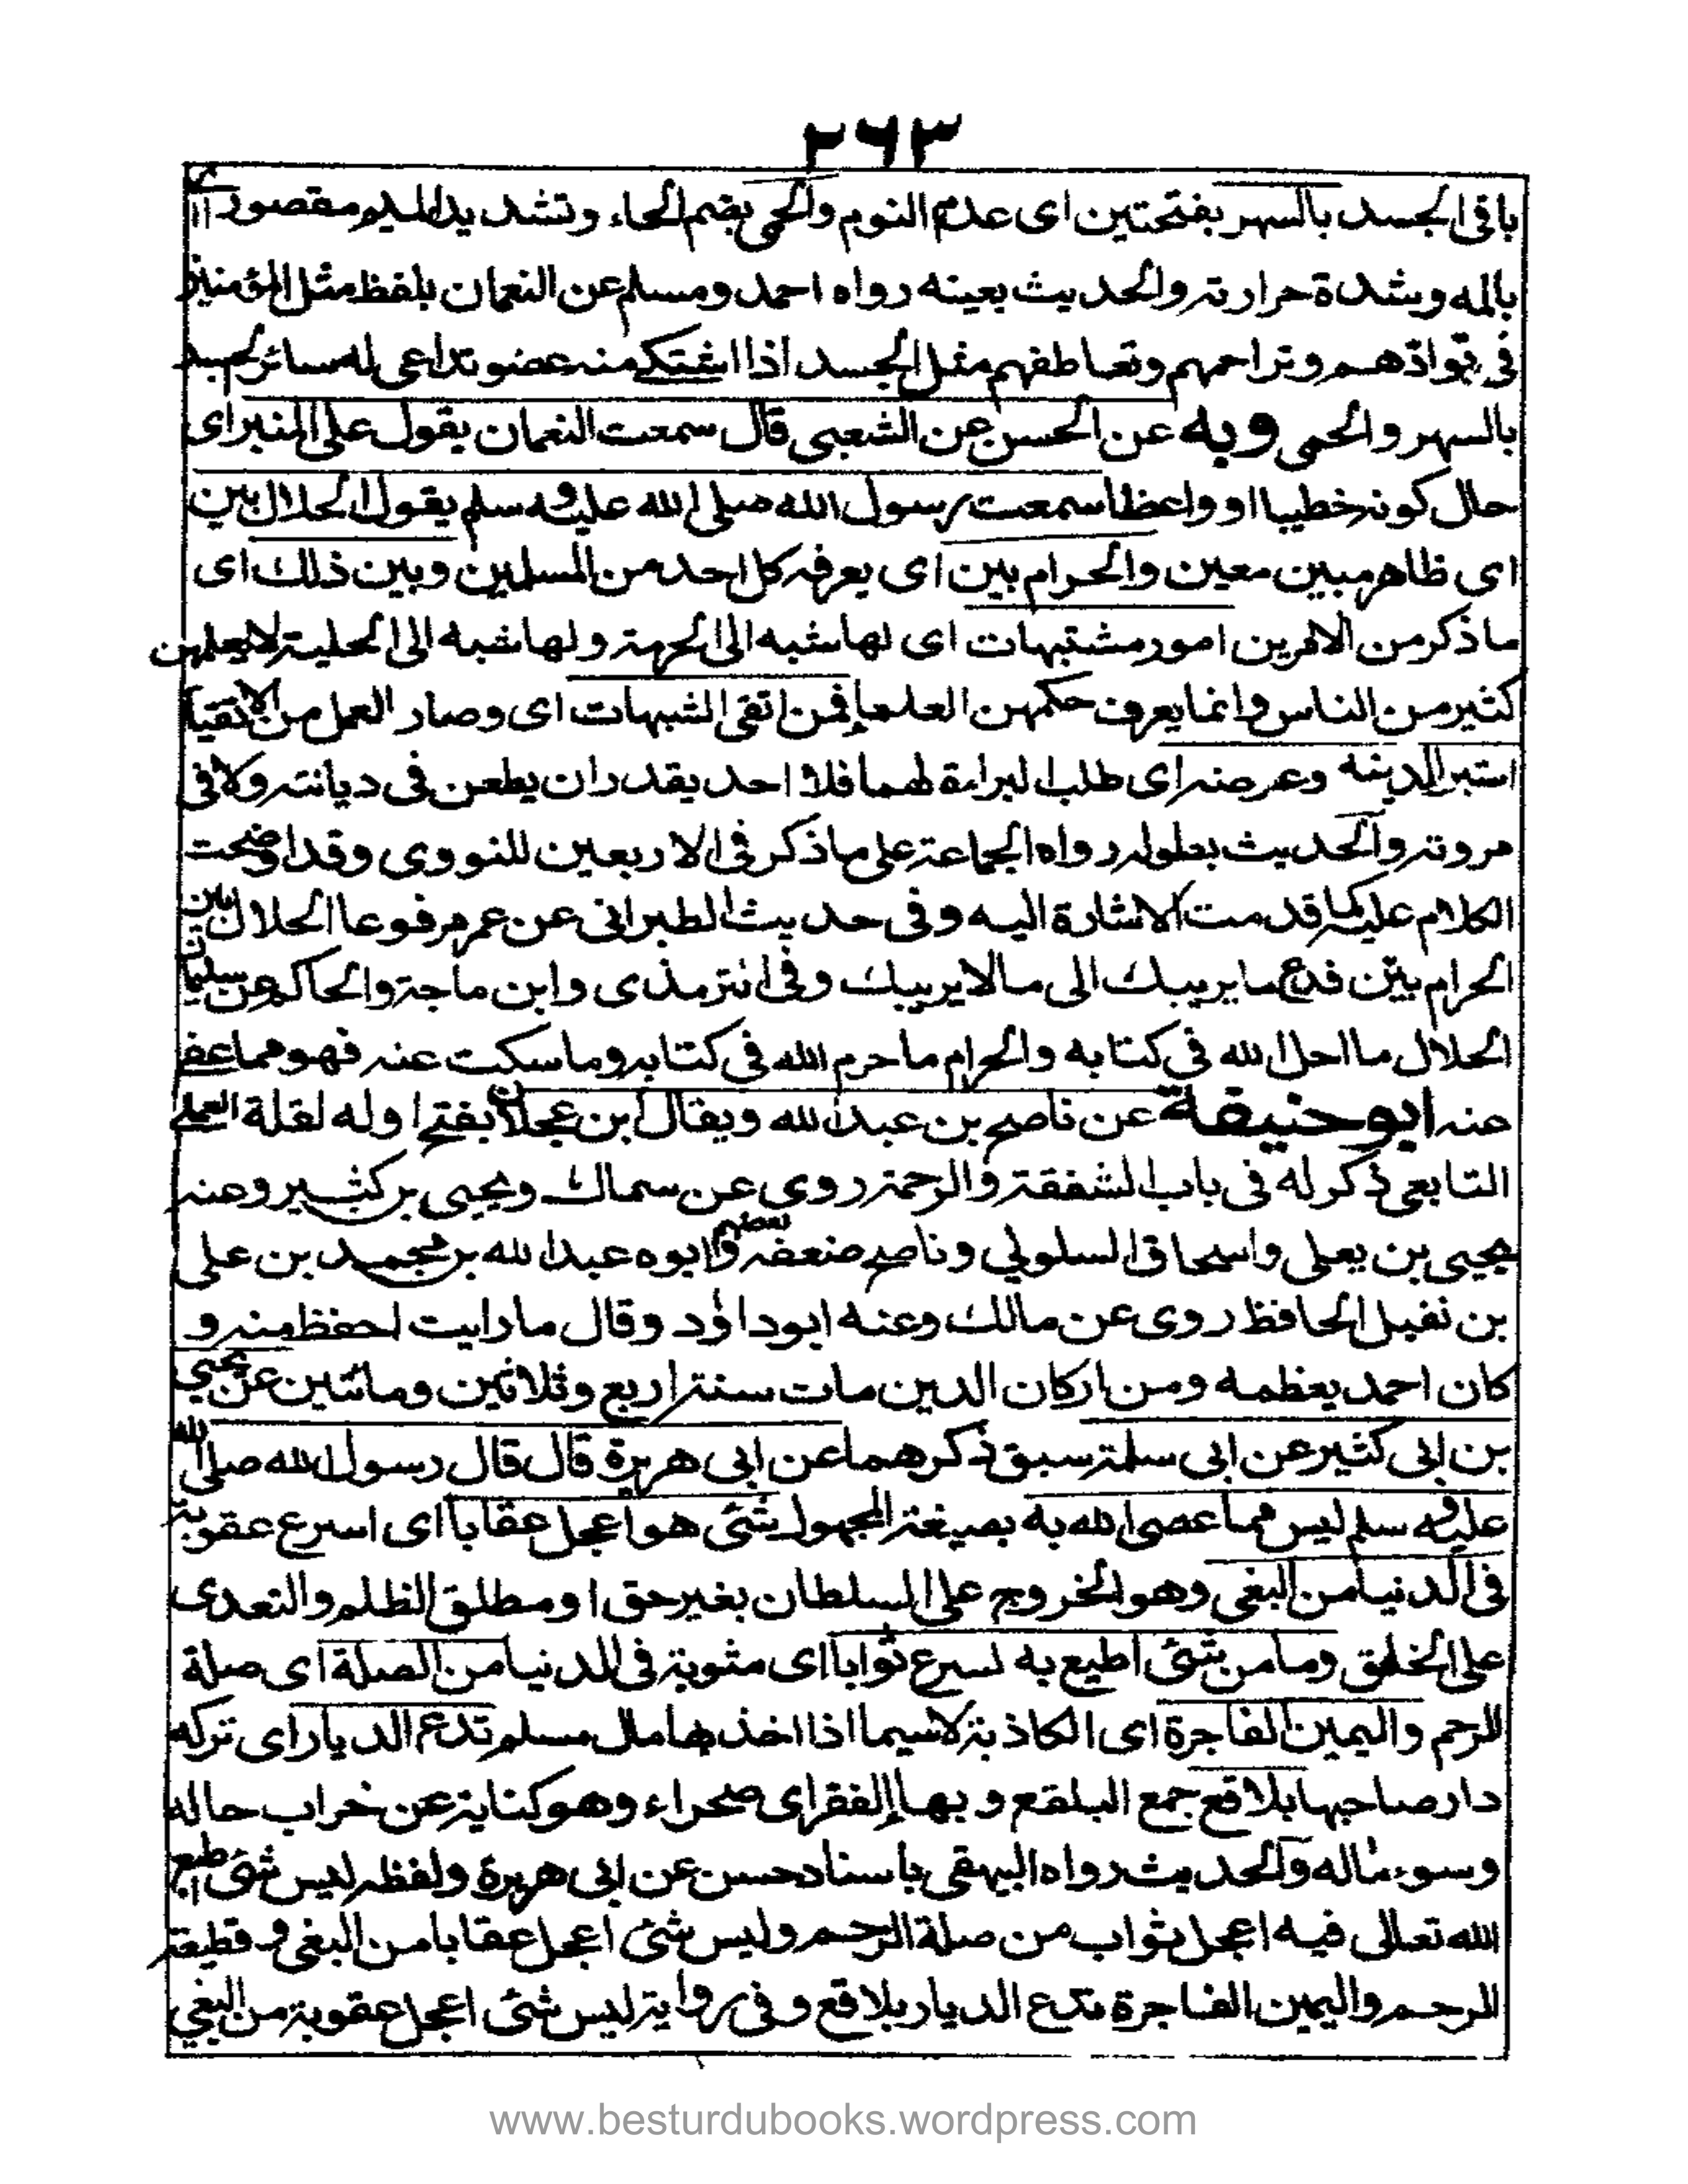 ٢٦٣
باقی الجسد بالسهر بفتحتین ای عدم النوم والحمی بضم الحاء وتشدید المیم مقصورا ای
بالمه وشدة حرارته والحدیث بعینه رواه احمد ومسلم عن النعمان بلفظ مثل المؤمنین
فی توادهم وتراحمهم وتعاطفهم مثل الجسد اذا اشتکے منه عضو تداعی له سائر الجسد
بالسهر والحمی وبه عن الحسن عن الشعبی قال سمعت النعمان یقول علی المنبر ای
حال کونه خطیبا او واعظا سمعت رسول الله صلی الله علیه وسلم یقول الحلال بین
ای ظاهر مبین معین والحرام بین ای یعرفه کل احد من المسلمین وبین ذلك ای
ما ذکر من الامرین امور مشتبهات ای لها شبه الی الحرمة ولها شبه الی الحلیة لا یعلمهن
کثیر من الناس وانما یعرف حکمهن العلماء فمن اتقی الشبهات ای وصار العمل من الاتقیاء
استبرا لدینه وعرضه ای طلب البراءة لهما فلا احد یقدر ان یطعن فی دیانته ولا فی
مروته والحدیث بطوله رواه الجماعة علی ما ذکر فی الاربعین للنووی وقد اوضحت
الکلام علیه کما قدمت الاشارة الیه وفی حدیث الطبرانی عن عمر مرفوعا الحلال بین
الحرام بیّن فدع ما یریبك الی ما لا یریبك وفی الترمذی وابن ماجة والحاکم عن سلیمان
الحلال ما احل الله فی کتابه والحرام ما حرم الله فی کتابه وما سکت عنه فهو مما عفی
عنه ابو حنیفة عن ناصح بن عبد الله ویقال ابن عجلان بفتح اوله لغلة العملے
التابعی ذکر له فی باب الشفقة والرحمة روی عن سماك ویحیی بن کثیر وعنه
یحیی بن یعلی واسحاق السلولی وناصح ضعفه بعضهم وابوه عبد الله بن محمد بن علی
بن نفیل الحافظ روی عن مالك وعنه ابو داؤد وقال ما رایت احفظ منه و
کان احمد یعظمه ومن ارکان الدین مات سنة اربع وثلاثین ومائتین عن یحیی
بن ابی کثیر عن ابی سلمة سبق ذکرهما عن ابی هریرة قال قال رسول الله صلی الله
علیه وسلم لیس مما عصی الله به بصیغة المجهول شئ هو اعجل عقابا ای اسرع عقوبة
فی الدنیا من البغی وهو الخروج علی السلطان بغیر حق او مطلق الظلم والتعدی
علی الخلق وما من شئ اطیع به اسرع ثوابا ای مثوبة فی الدنیا من الصلة ای صلة
الرحم والیمین الفاجرة ای الکاذبة لا سیما اذا اخذ بها مال مسلم تدع الدیار ای تترکه
دار صاحبها بلاقع جمع البلقع و بهاء الفقر ای صحراء وهو کنایة عن خراب حاله
وسوء ماله والحدیث رواه البیهقی باسناد حسن عن ابی هریرة ولفظه لیس شئ اطیع
الله تعالی فیه اعجل ثواب من صلة الرحم ولیس شئ اعجل عقابا من البغی و قطیعة
الرحم والیمین الفاجرة تدع الدیار بلاقع وفی روایة لیس شئ اعجل عقوبة من البغی
www.besturdubooks.wordpress.com